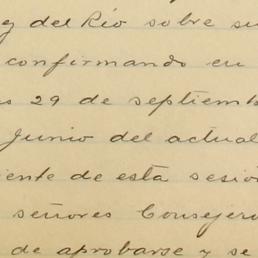 y del Río sobre su
confirmando en
29 de septiemb
Junio del actual
ente de esta sesió
señores Consejero
de aprobarse y se